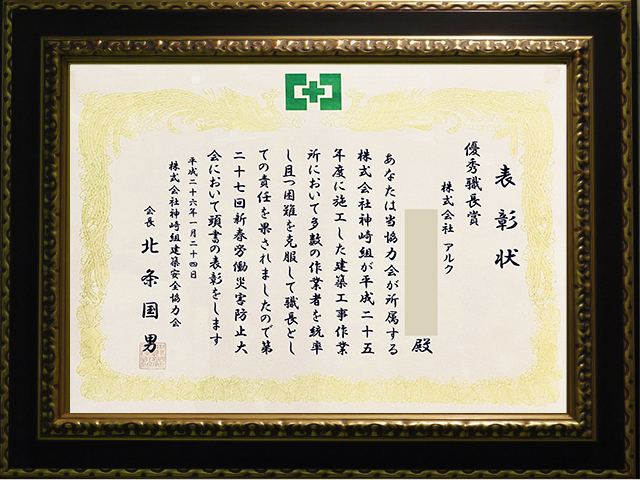 表彰状
優秀職長賞
株式会社 アルク
殿
あなたは当協力会が所属する
株式会社神﨑組が平成二十五
年度に施工した建築工事作業
所において多数の作業者を統率
し且つ困難を克服して職長とし
ての責任を果されましたので第
二十七回新春労働災害防止大
会において頭書の表彰をします
平成二十六年一月二十四日
株式会社神﨑組建築安全協力会
会長 北条国男